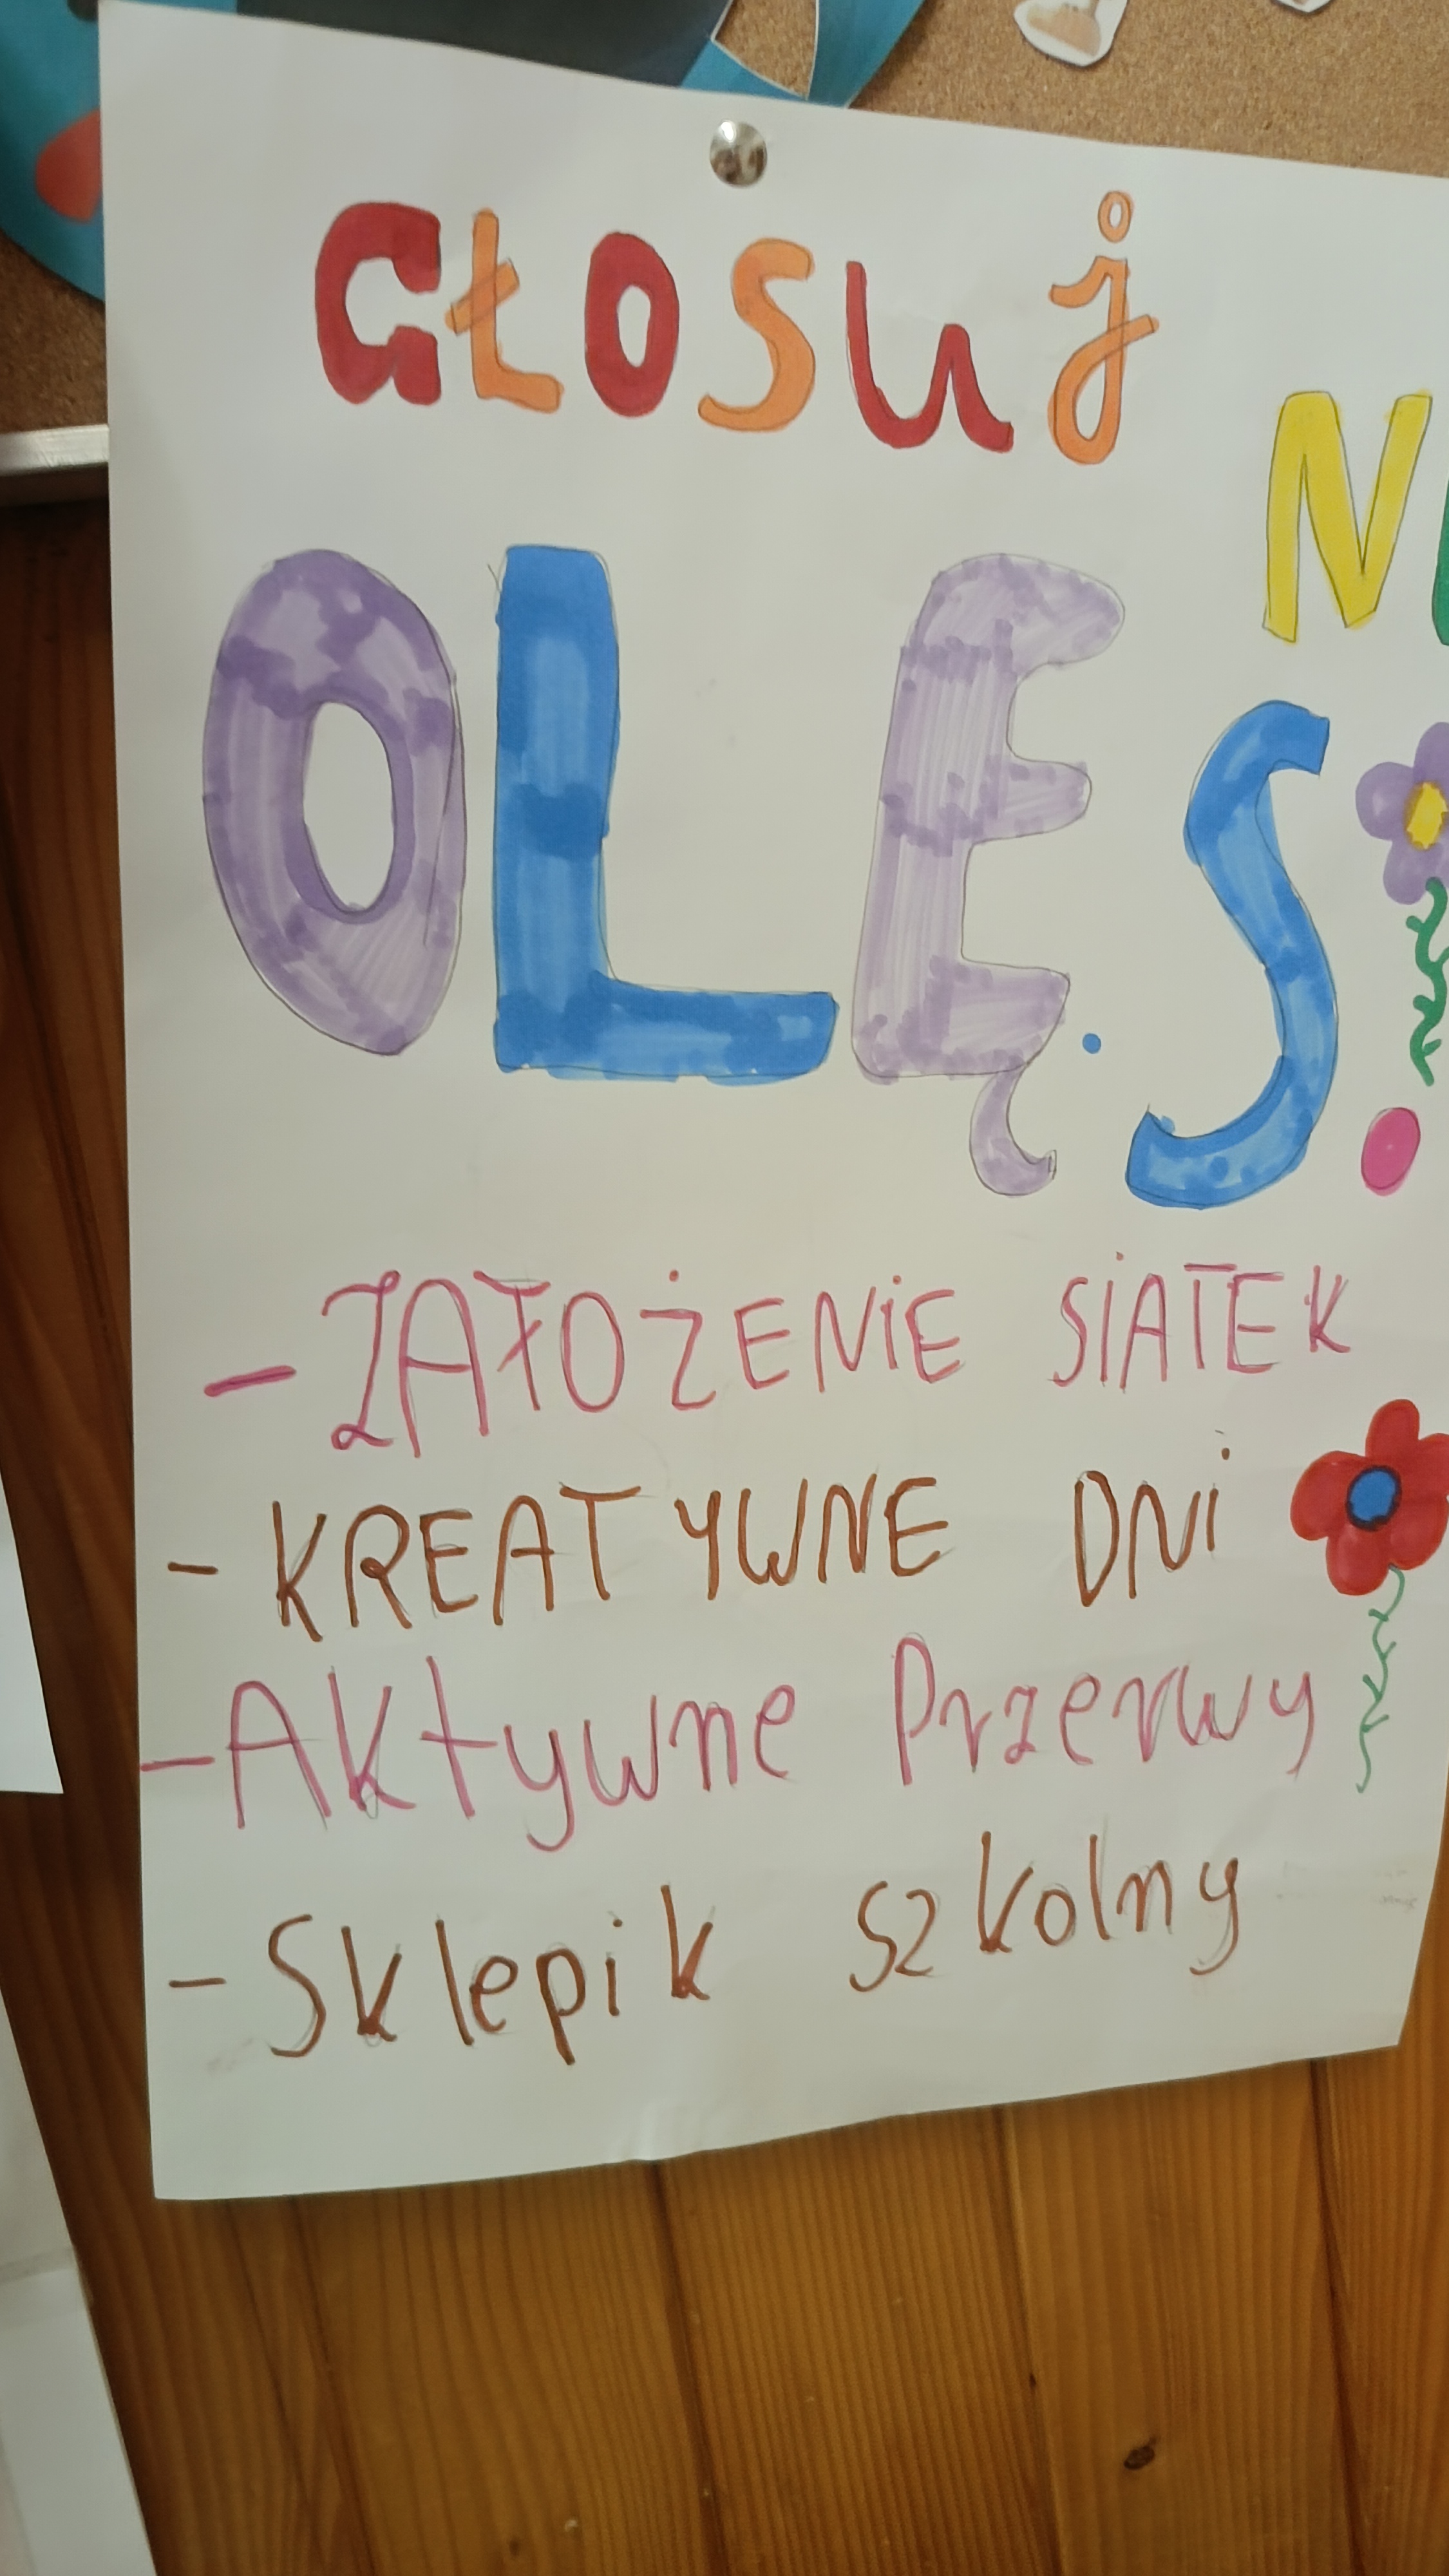 GŁOSUJ
OLĘ S.
- ZAŁOŻENIE SIATEK
- KREATYWNE DNI
- Aktywne Przerwy
- Sklepik szkolny